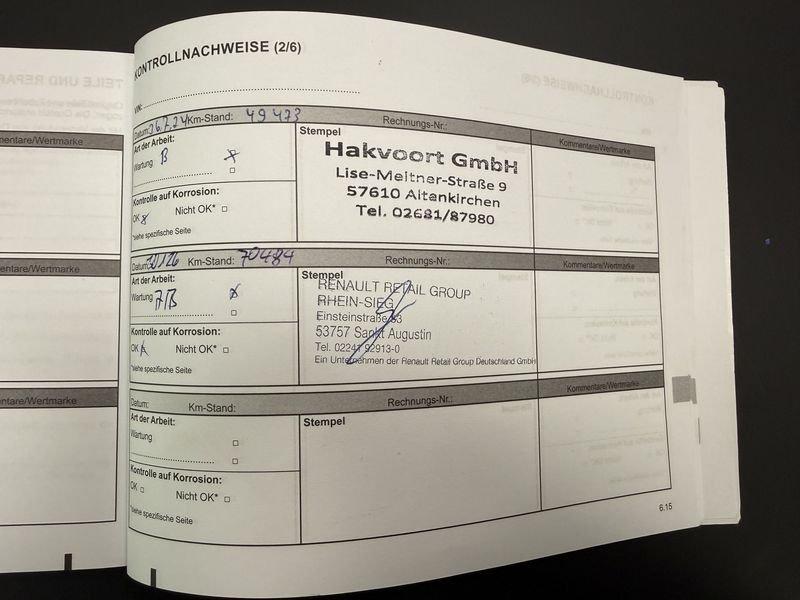 TEILE UND REPAR
KONTROLLNACHWEISE (2/6)
VIN:
Datum: 26.7.24 Km-Stand: 49 473 Rechnungs-Nr.: Kommentare/Wertmarke
Art der Arbeit:
Wartung B
Kontrolle auf Korrosion:
OK Nicht OK*
*siehe spezifische Seite
Stempel
Hakvoort GmbH
Lise-Meitner-Straße 9
57610 Altenkirchen
Tel. 02681/87980
Datum: Km-Stand: 70484 Rechnungs-Nr.: Kommentare/Wertmarke
Art der Arbeit:
Wartung
Kontrolle auf Korrosion:
OK Nicht OK*
*siehe spezifische Seite
Stempel
RENAULT RETAIL GROUP
RHEIN-SIEG
Einsteinstraße
53757 Sankt Augustin
Tel. 02241 92913-0
Ein Unternehmen der Renault Retail Group Deutschland GmbH
Datum: Km-Stand: Rechnungs-Nr.: Kommentare/Wertmarke
Art der Arbeit:
Wartung
Kontrolle auf Korrosion:
OK Nicht OK*
*siehe spezifische Seite
Stempel
6.15
mentare/Wertmarke
mentare/Wertmarke
entare/Wertmarke